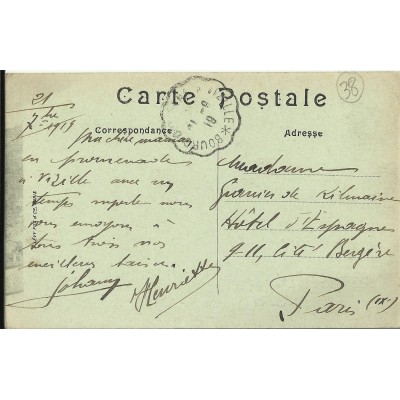 38
Carte Postale
Correspondance
Adresse
21
7bre 1919
ma chère maman
en promenade
à Vizille avec un
temps superbe nous
vous envoyons à
tous trois nos
meilleurs baisers
Johanny Henriette
Madame
Garnier de Kilmaine
Hôtel d'Espagne
9-11, Cité Bergère
Paris (IXe)